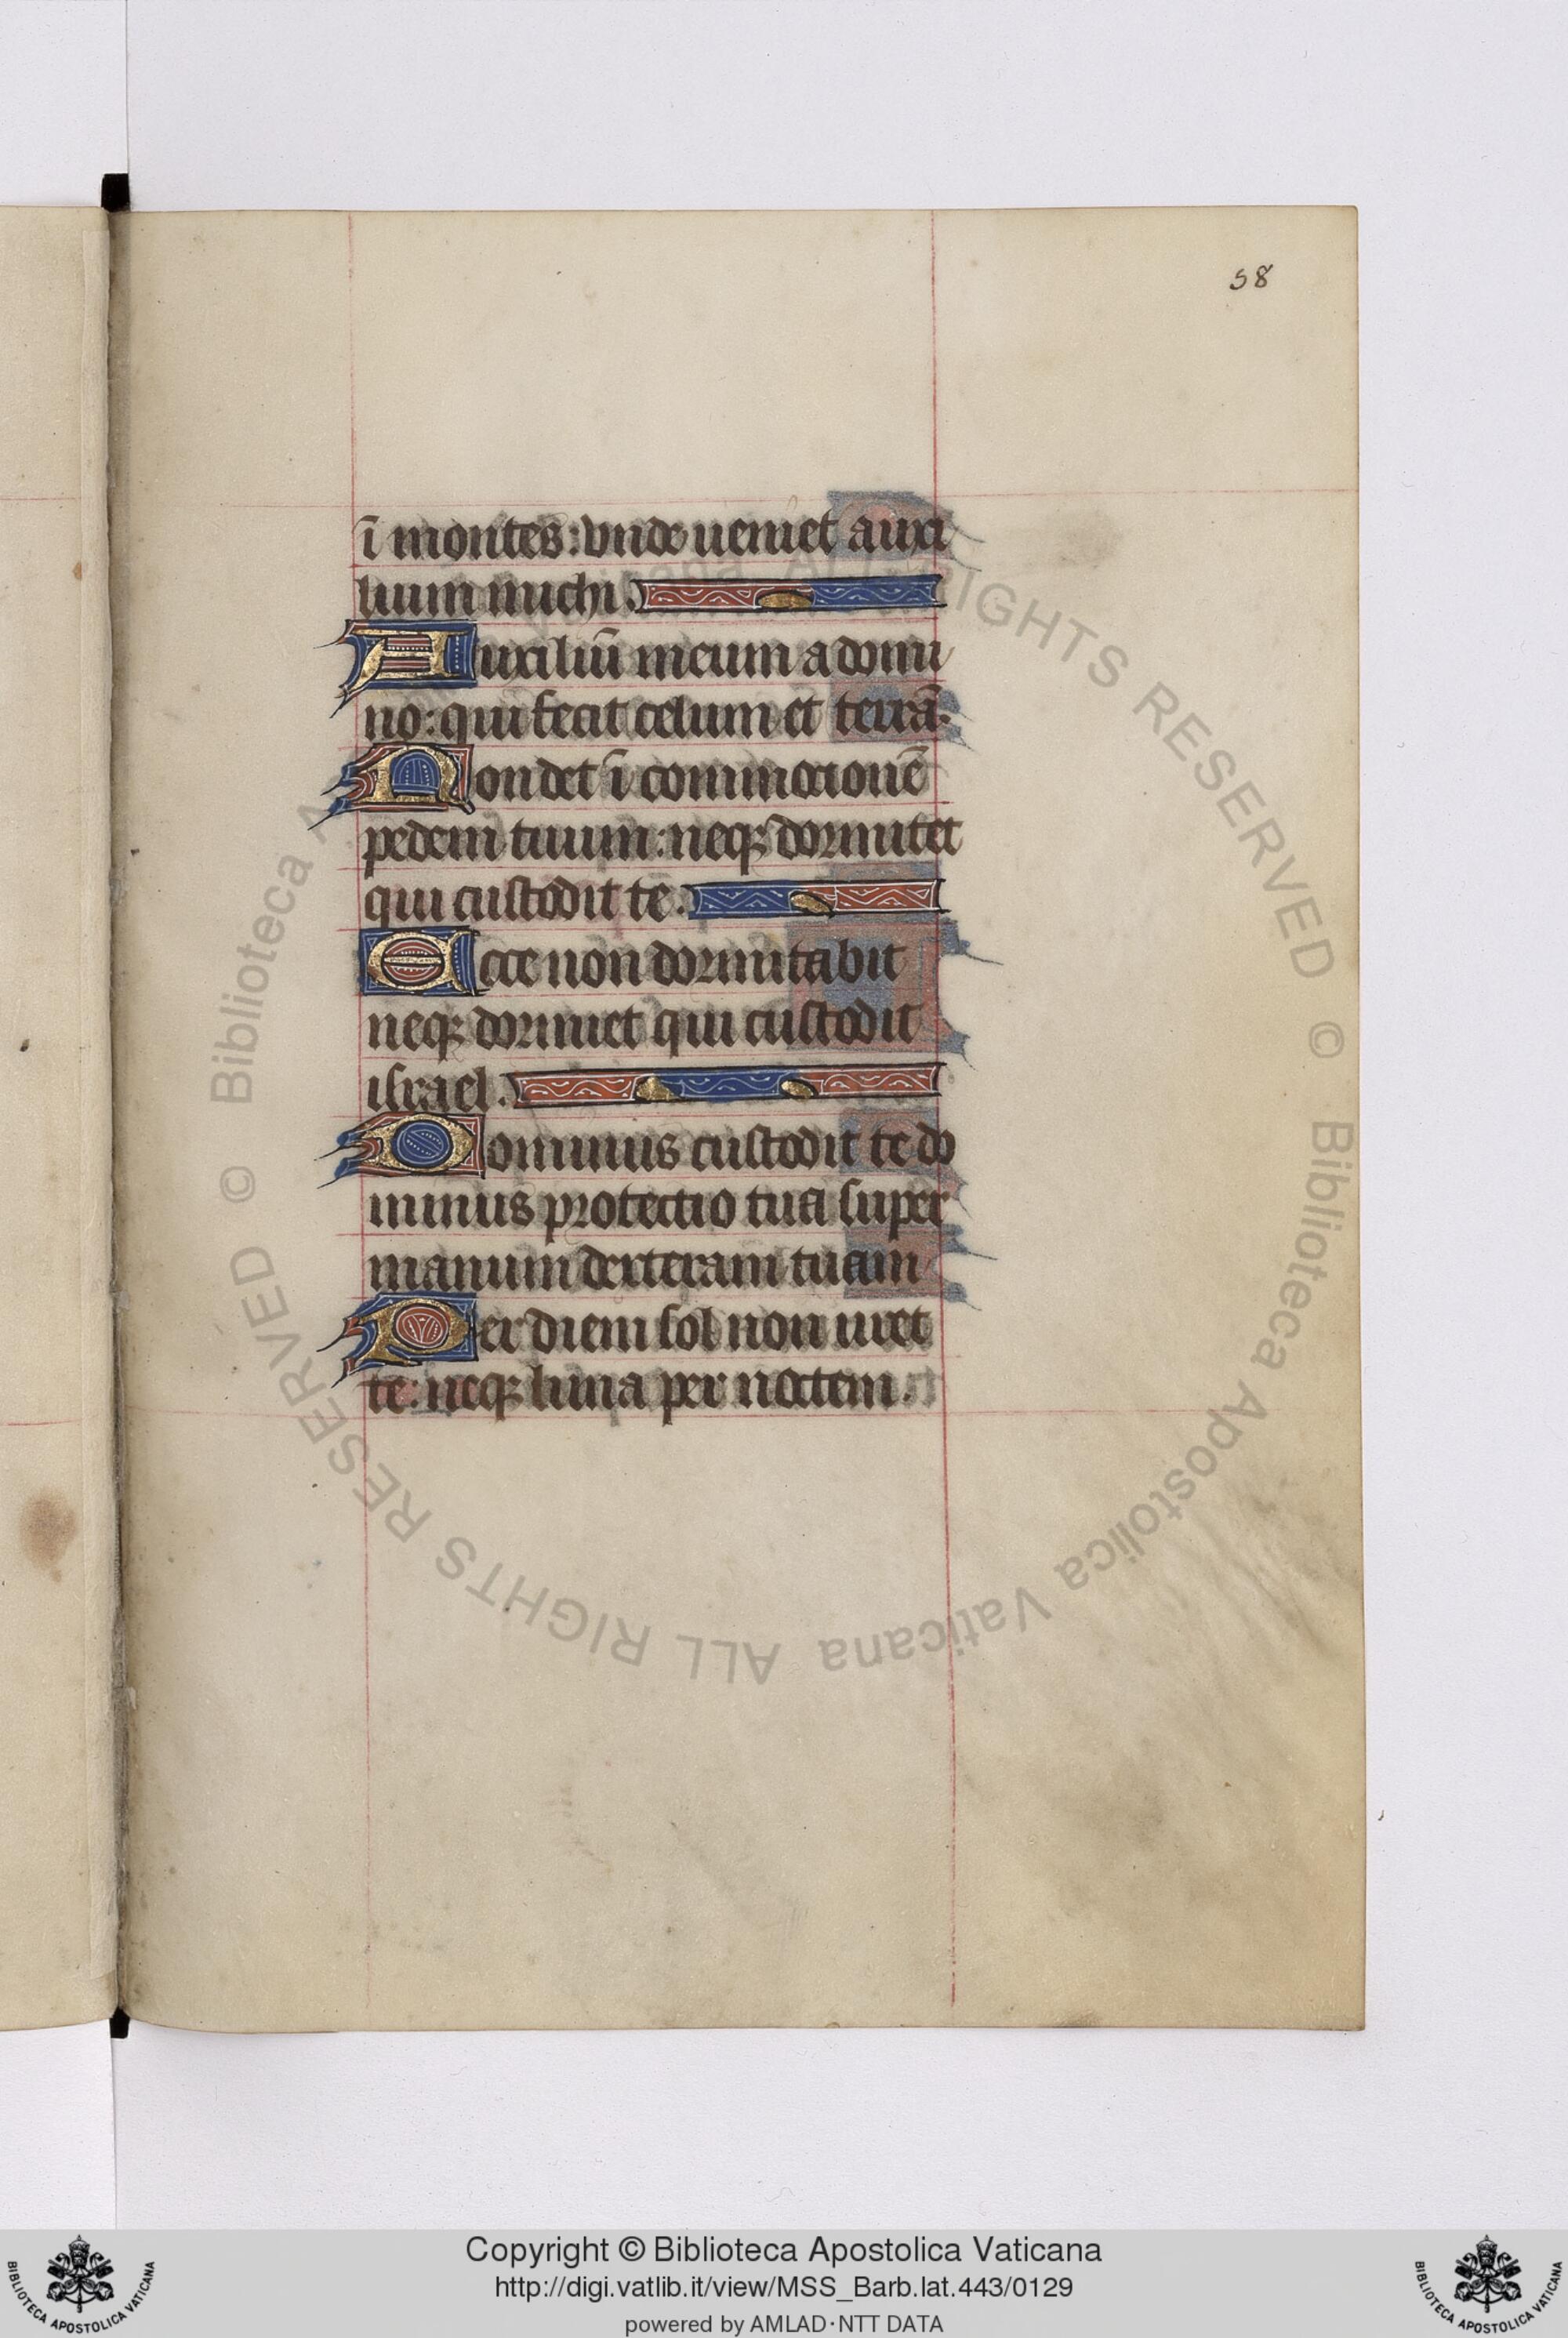 58
ī montes: vnde ueniet auxi
lium michi.
Auxiliū meum a domi
no: qui fecit celum et terrā.
Non det ī commocionē
pedem tuum: neqꝫ dormitet
qui custodit te.
Ecce non dormitabit
neqꝫ dormiet qui custodit
israel.
Dominus custodit te do
minus protectio tua super
manum dexteram tuam
Per diem sol non uret
te: neqꝫ luna per noctem.
© Biblioteca Apostolica Vaticana ALL RIGHTS RESERVED
© Biblioteca Apostolica Vaticana ALL RIGHTS RESERVED
Copyright © Biblioteca Apostolica Vaticana
http://digi.vatlib.it/view/MSS_Barb.lat.443/0129
powered by AMLAD·NTT DATA
BIBLIOTECA APOSTOLICA VATICANA
BIBLIOTECA APOSTOLICA VATICANA